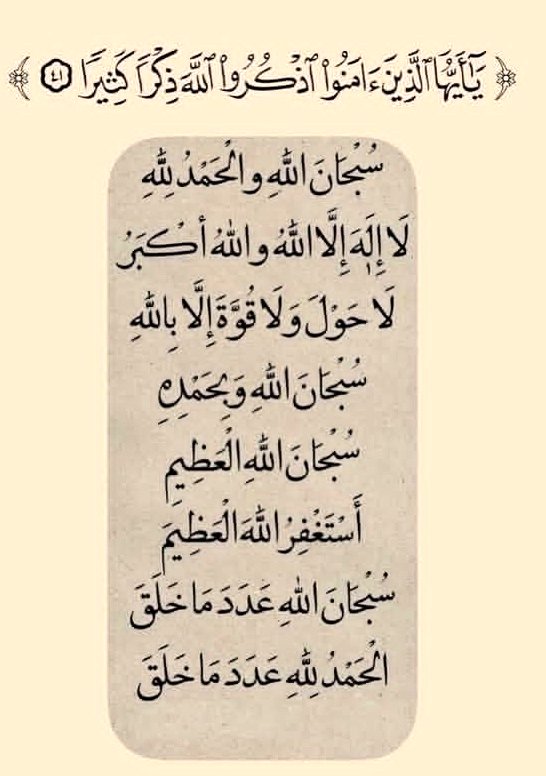 ﴿ يَٰٓأَيُّهَا ٱلَّذِينَ ءَامَنُوا۟ ٱذْكُرُوا۟ ٱللَّهَ ذِكْرًا كَثِيرًا ٤١ ﴾
سُبْحَانَ اللهِ والْحَمْدُ لِلّٰهِ
لَا إِلَٰهَ إِلَّا اللهُ واللهُ أكْبَرُ
لَا حَوْلَ وَلَا قُوَّةَ إِلَّا بِاللهِ
سُبْحَانَ اللهِ وَبِحَمْدِهِ
سُبْحَانَ اللهِ الْعَظِيمِ
أَسْتَغْفِرُ اللهَ الْعَظِيمَ
سُبْحَانَ اللهِ عَدَدَ مَا خَلَقَ
الْحَمْدُ لِلّٰهِ عَدَدَ مَا خَلَقَ